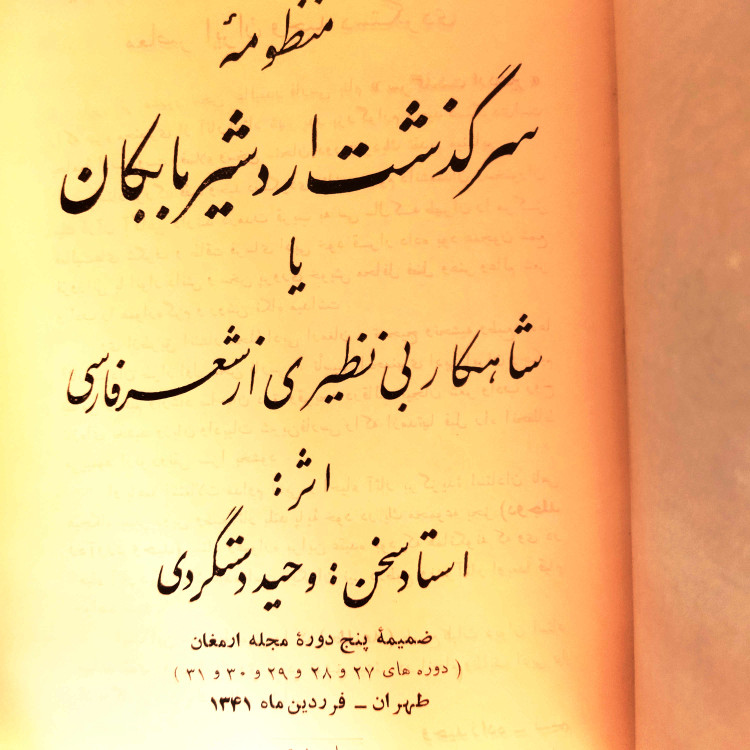 منظومهٔ
سرگذشت اردشیر بابکان
یا
شاهکار بی نظیری از شعر فارسی
اثر:
استاد سخن: وحید دستگردی
ضمیمهٔ پنج دورهٔ مجله ارمغان
( دوره های ۲۷ و ۲۸ و ۲۹ و ۳۰ و ۳۱ )
طهران – فرردین ماه ۱۳۴۱